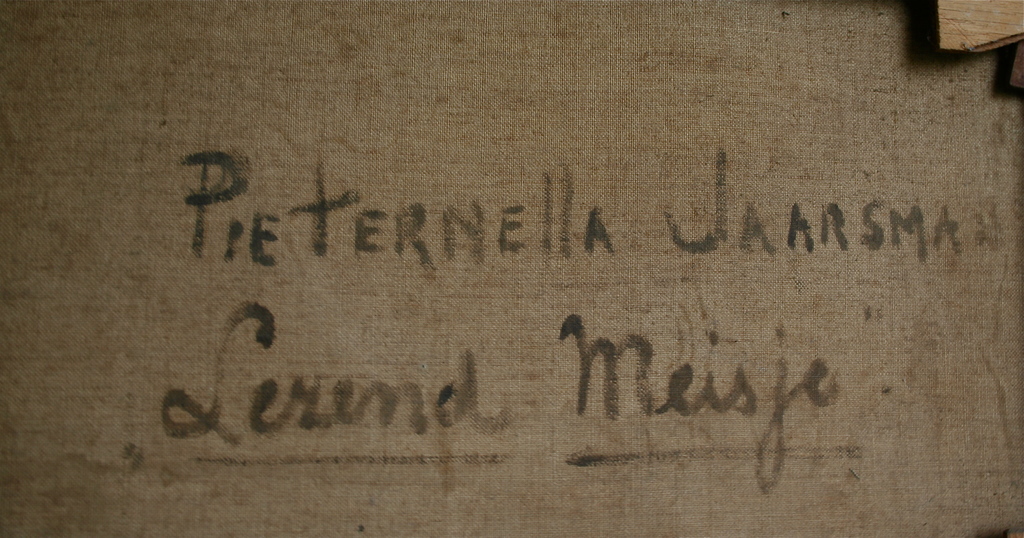 PIETERNEllA JAARSMAN
Lezend Meisje